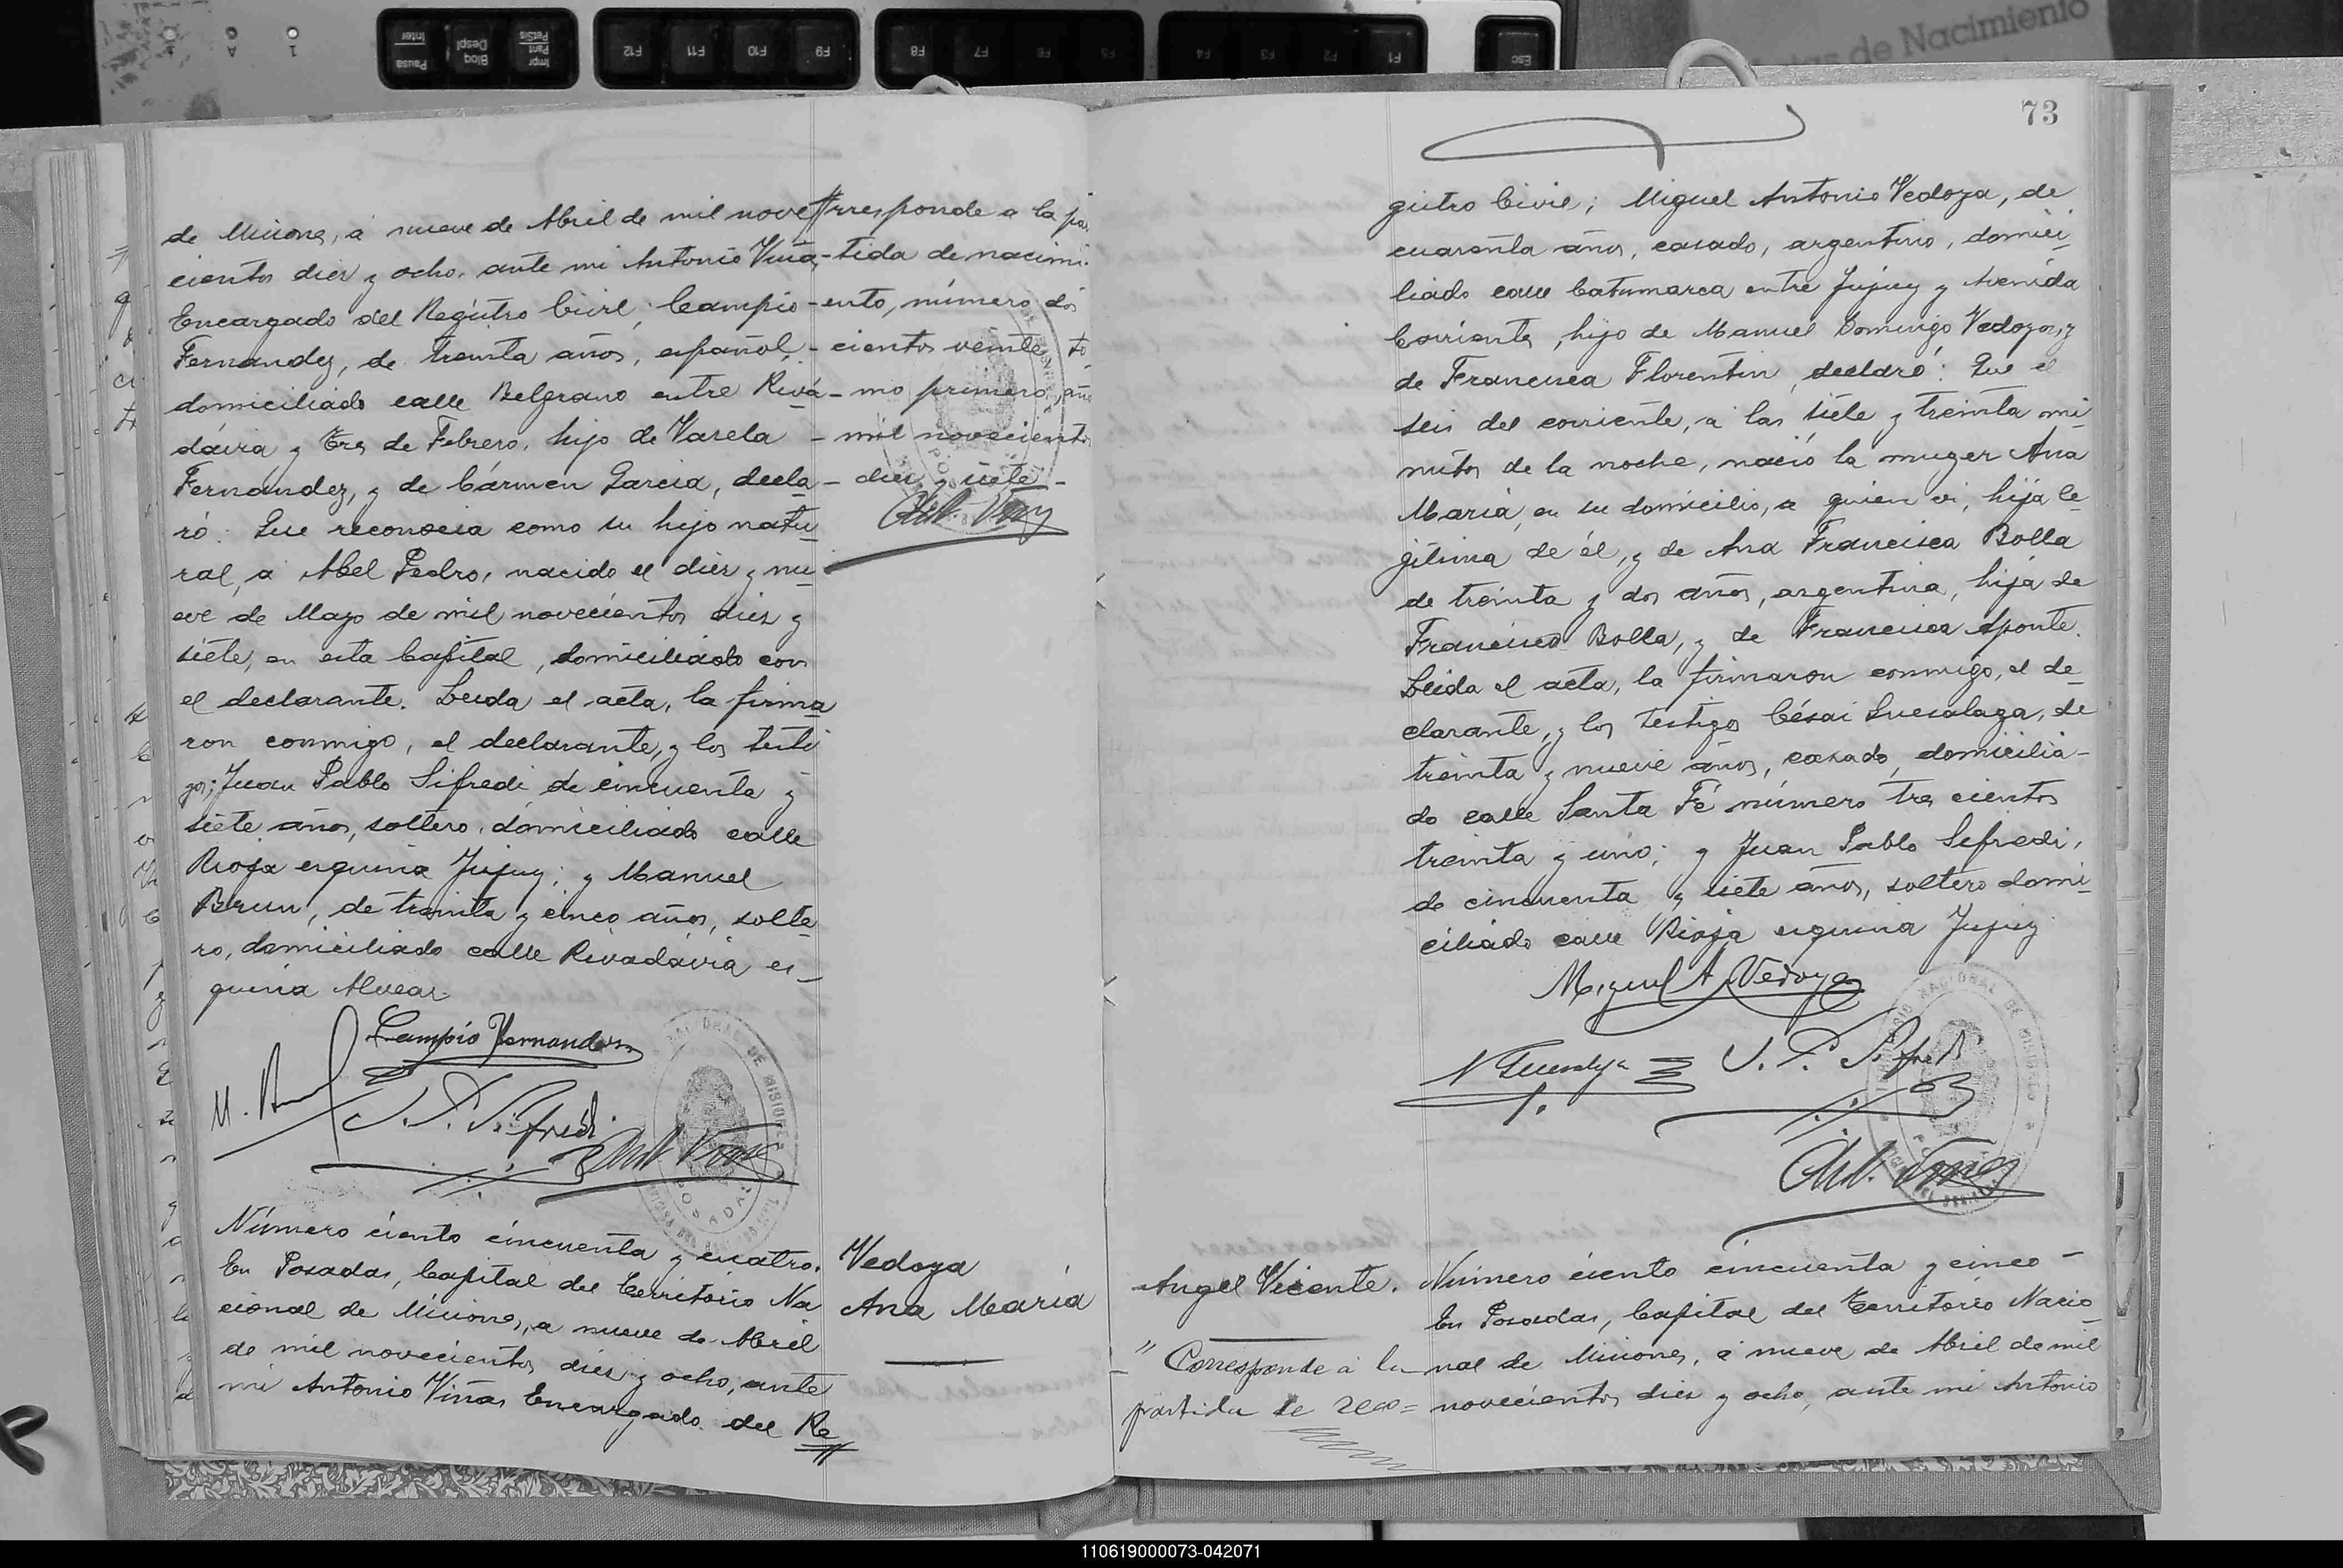 73
de Misiones, á nueve de Abril de mil nove
cientos diez y ocho, ante mi Antonio Viñas
Encargado del Registro Civil; Campio
Fernandez, de treinta años, español,
domiciliado calle Belgrano entre Rivá-
dávia y Tres de Febrero, hijo de Varela
Fernández, y de Cármen Garcia, decla-
ró: Que reconocia como su hijo natu-
ral, a Abel Pedro, nacido el diez y nu-
eve de Mayo de mil novecientos diez y
siete, en esta Capital, domiciliado con
el declarante. Leida el acta, la firma
ron conmigo, el declarante, y los testi
gos; Juan Pablo Sifredi de cincuenta y
siete años, soltero, domiciliado calle
Rioja esquina Jujuy; y Manuel
Brun, de treinta y cinco años, solte-
ro, domiciliado calle Rivadávia es-
quina Alvear.
rresponde a la par
tida de nacimi-
ento, número dos
cientos veinte, to
mo primero, año
mil novecientos
diez y siete -
Campio Fernandez
J. P. Sifredi
Número ciento cincuenta y cuatro.
En Posadas, Capital del Territorio Na
cional de Misiones, a nueve de Abril
de mil novecientos diez y ocho, ante
mi Antonio Viñas Encargado del Re
Vedoya
Ana María
gistro Civil; Miguel Antonio Vedoya, de
cuarenta años, casado, argentino, domici-
liado calle Catamarca entre Jujuy y Avenida
Corrientes, hijo de Manuel Domingo Vedoya, y
de Francisca Florentin, declaró: Que el
seis del corriente, a las siete y treinta mi
nutos de la noche, nació la muger Ana
María, en su domicilio, a quien vi, hija le-
gitima de él, y de Ana Francisca Bolla
de treinta y dos años, argentina, hija de
Francisco Bolla, y de Francisca Aponte.
Leida el acta, la firmaron conmigo, el de-
clarante, y los testigos César, de
treinta y nueve años, casado, domicilia-
do calle Santa Fé número tres cientos
treinta y uno; y Juan Pablo Sifredi,
de cincuenta y siete años, soltero domi-
ciliado calle Rioja esquina Jujuy
Miguel A. Vedoya
J. P. Sifredi
Angel Vicente.
" Corresponde á la
partida de reco=
Número ciento cincuenta y cinco -
En Posadas, Capital del Territorio Nacio-
nal de Misiones, á nueve de Abril de mil
novecientos diez y ocho, ante mi Antonio
110619000073-042071